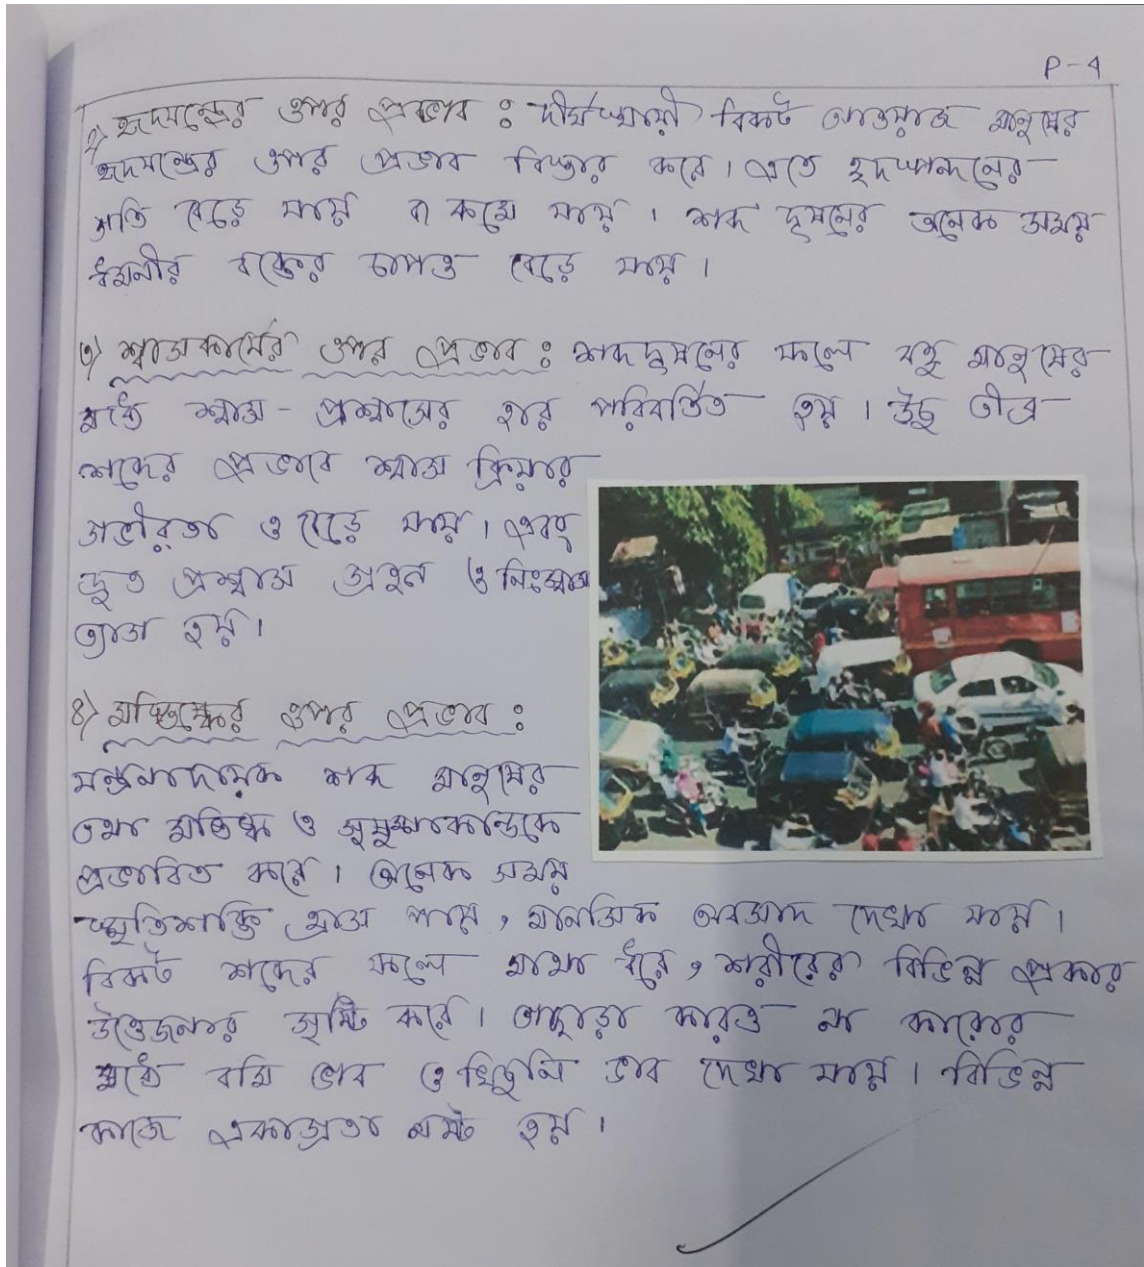 P-4
২) হৃদযন্ত্রের ওপর প্রভাব : দীর্ঘস্থায়ী বিকট আওয়াজ মানুষের
হৃদযন্ত্রের ওপর প্রভাব বিস্তার করে। এতে হৃদস্পন্দনের
গতি বেড়ে যায় বা কমে যায়। শব্দ দূষনের অনেক সময়
ধমনীর রক্তের চাপও বেড়ে যায়।
৩) শ্বাসকার্যের ওপর প্রভাব : শব্দদূষনের ফলে বহু মানুষের
মধ্যে শ্বাস-প্রশ্বাসের হার পরিবর্তিত হয়। উচু তীব্র
শব্দের প্রভাবে শ্বাস ক্রিয়ার
গভীরতা ও বেড়ে যায়। এবং
দ্রুত প্রশ্বাস গ্রহন ও নিঃশ্বাস
ত্যাগ হয়।
৪) মস্তিষ্কের ওপর প্রভাব :
যন্ত্রনাদায়ক শব্দ মানুষের
তথা মস্তিষ্ক ও সুষুম্মাকান্ডকে
প্রভাবিত করে। অনেক সময়
স্মৃতিশক্তি হ্রাস পায়, মানসিক অবসাদ দেখা যায়।
বিকট শব্দের ফলে মাথা ধরে, শরীরের বিভিন্ন প্রকার
উত্তেজনার সৃষ্টি করে। তাছাড়া কারও না কারোর
মধ্যে বমি ভাব ও খিচুনি ভাব দেখা যায়। বিভিন্ন
কাজে একাগ্রতা নষ্ট হয়।